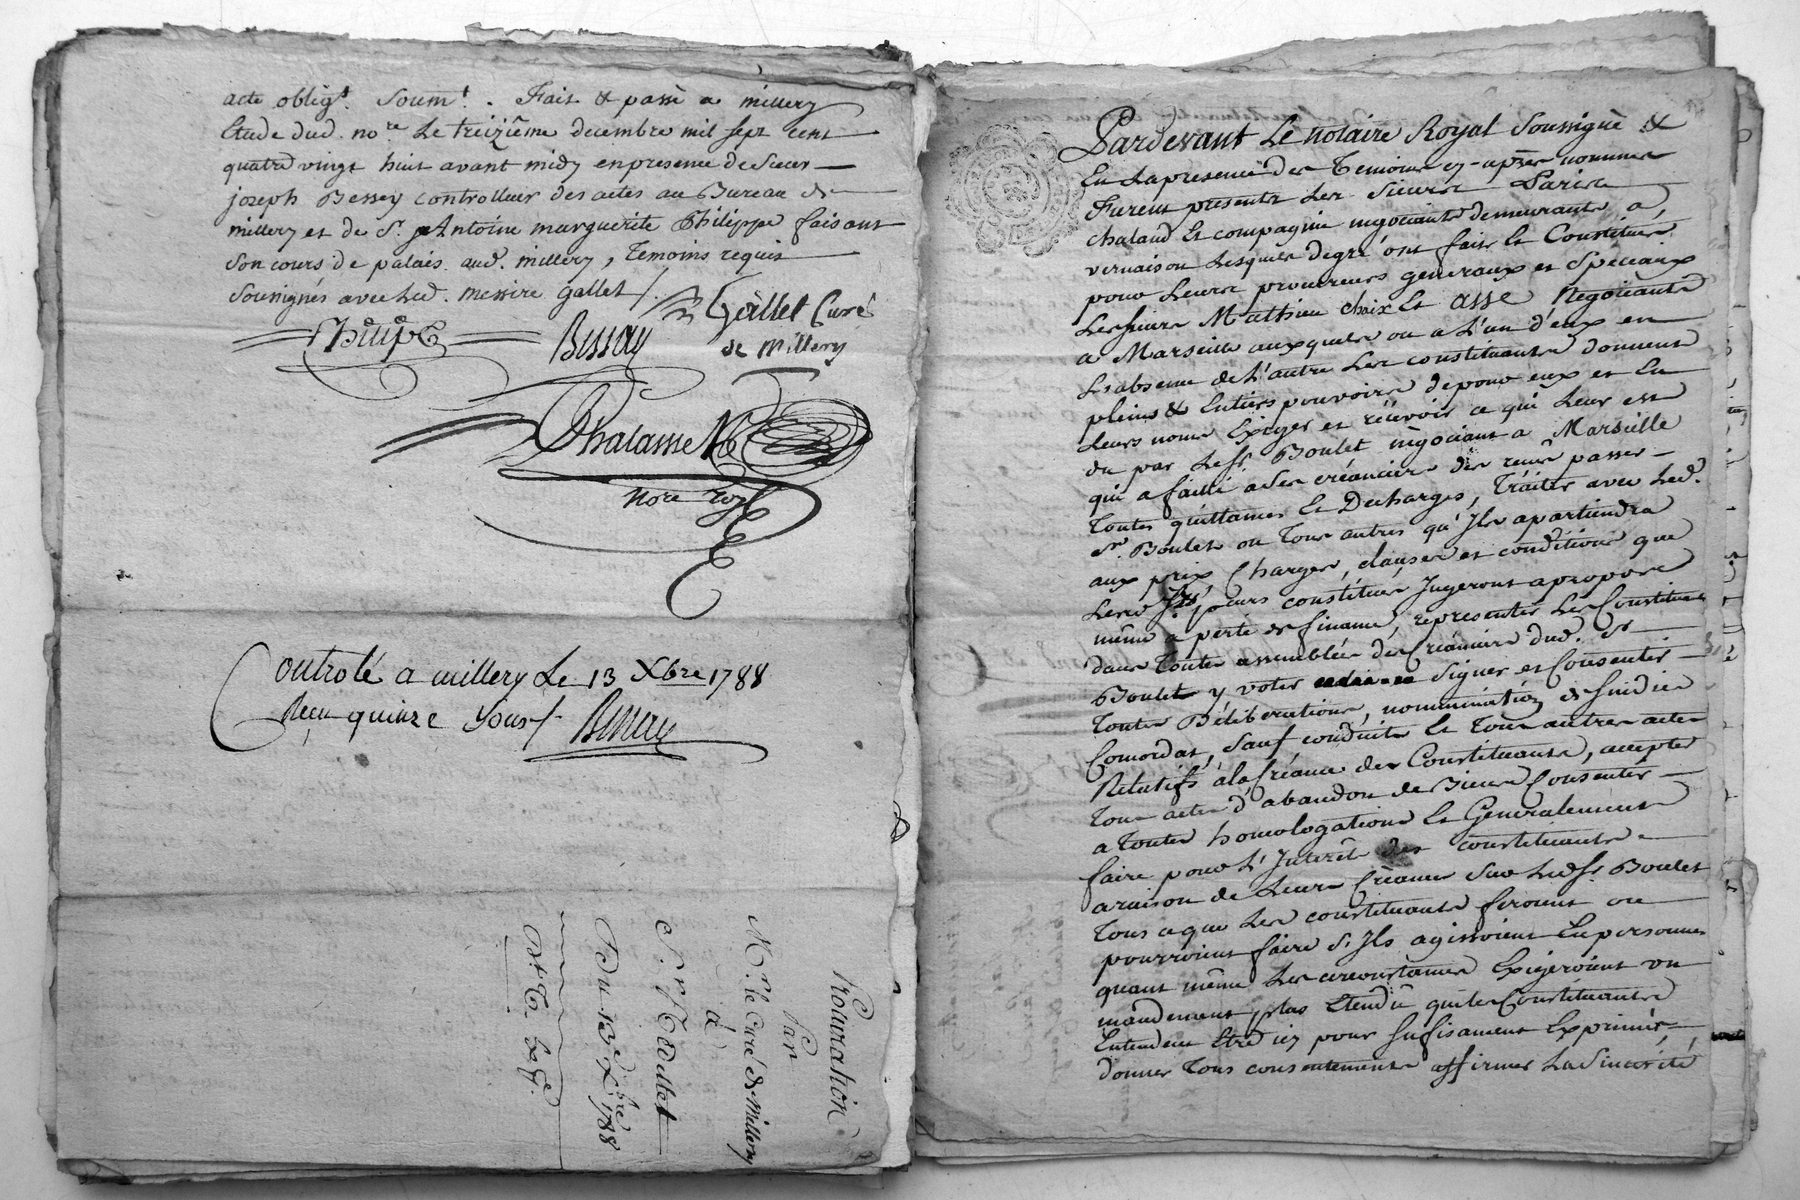 acte obligt. Soumt. Fait & passé a millery
Etude dud. nore Le treizième decembre mil sept cent
quatre vingt huit avant midy en presence de Sieur
joseph Bessey controlleur des actes au Bureau de
millery et de Sr. Antoine marguerite Philippe faisant
son cours de palais aud. millery, Temoins requis
Soussignés avec led. messire gallet /.
Gallet Curé
de Millery
Philipe
Bessay
Chalamel
nore royl
Controlé a millery Le 13 Xbre 1788
Reçu quinze sous /. Bessay
Procuration
Par
Mr. le Curé de Millery
à
Sr.
Du 13e Xbre 1788
Pardevant Le notaire Royal Soussigné &
En La presence des Temoins cy-après nommés
Furent presents Les Sieurs Parise
chaland Et compagnie negociants demeurants a
vernaison Lesquels degré ont fait Et Constitués
pour Leurs procureurs generaux et Speciaux
Les sieurs Mathieu Chaix Et asse Negociants
a Marseille auxquels ou a L'un d'eux en
L'absence de L'autre Les constituants donnent
pleins & Entiers pouvoirs de pour eux et En
Leurs noms Exiger et récevoir ce qui Leur est
du par Le Sr. Boulet négociant a Marseille
qui a failli a Ses créanciers des reçus passer
Toutes quittances Et Decharges, Traiter avec Led.
Sr. Boulet ou Tous autres qu'Il apartiendra
aux prix, Charges, clauses et conditions que
Lesd. Srs. pcurs constitués Jugeront apropos
même a perte de finance, representer Les Constituants
dans Toutes assemblées de Créanciers dud. Sr.
Boulet y voter signer et Consentir
Toutes Déliberations, nomminations de sindics
Concordat, Sauf conduits Et Tous autres actes
Rélatifs à la Créance des Constituants, accepter
Tous actes d'abandon de Biens Consentir
a Toutes homologations Et Généralement
faire pour L'Interêt des constituants
a raison de Leurs Créances Sur Led. Sr. Boulet
Tous ce que Les constituants feroient ou
pourroient faire S'Ils agissoient En personnes
quant même Les circonstances Exigeroient un
mandement plus Etendû que les Constituants
Entendent Etre icy pour Sufisament Exprimés,
donner Tous consentements affirmer La Sincérité